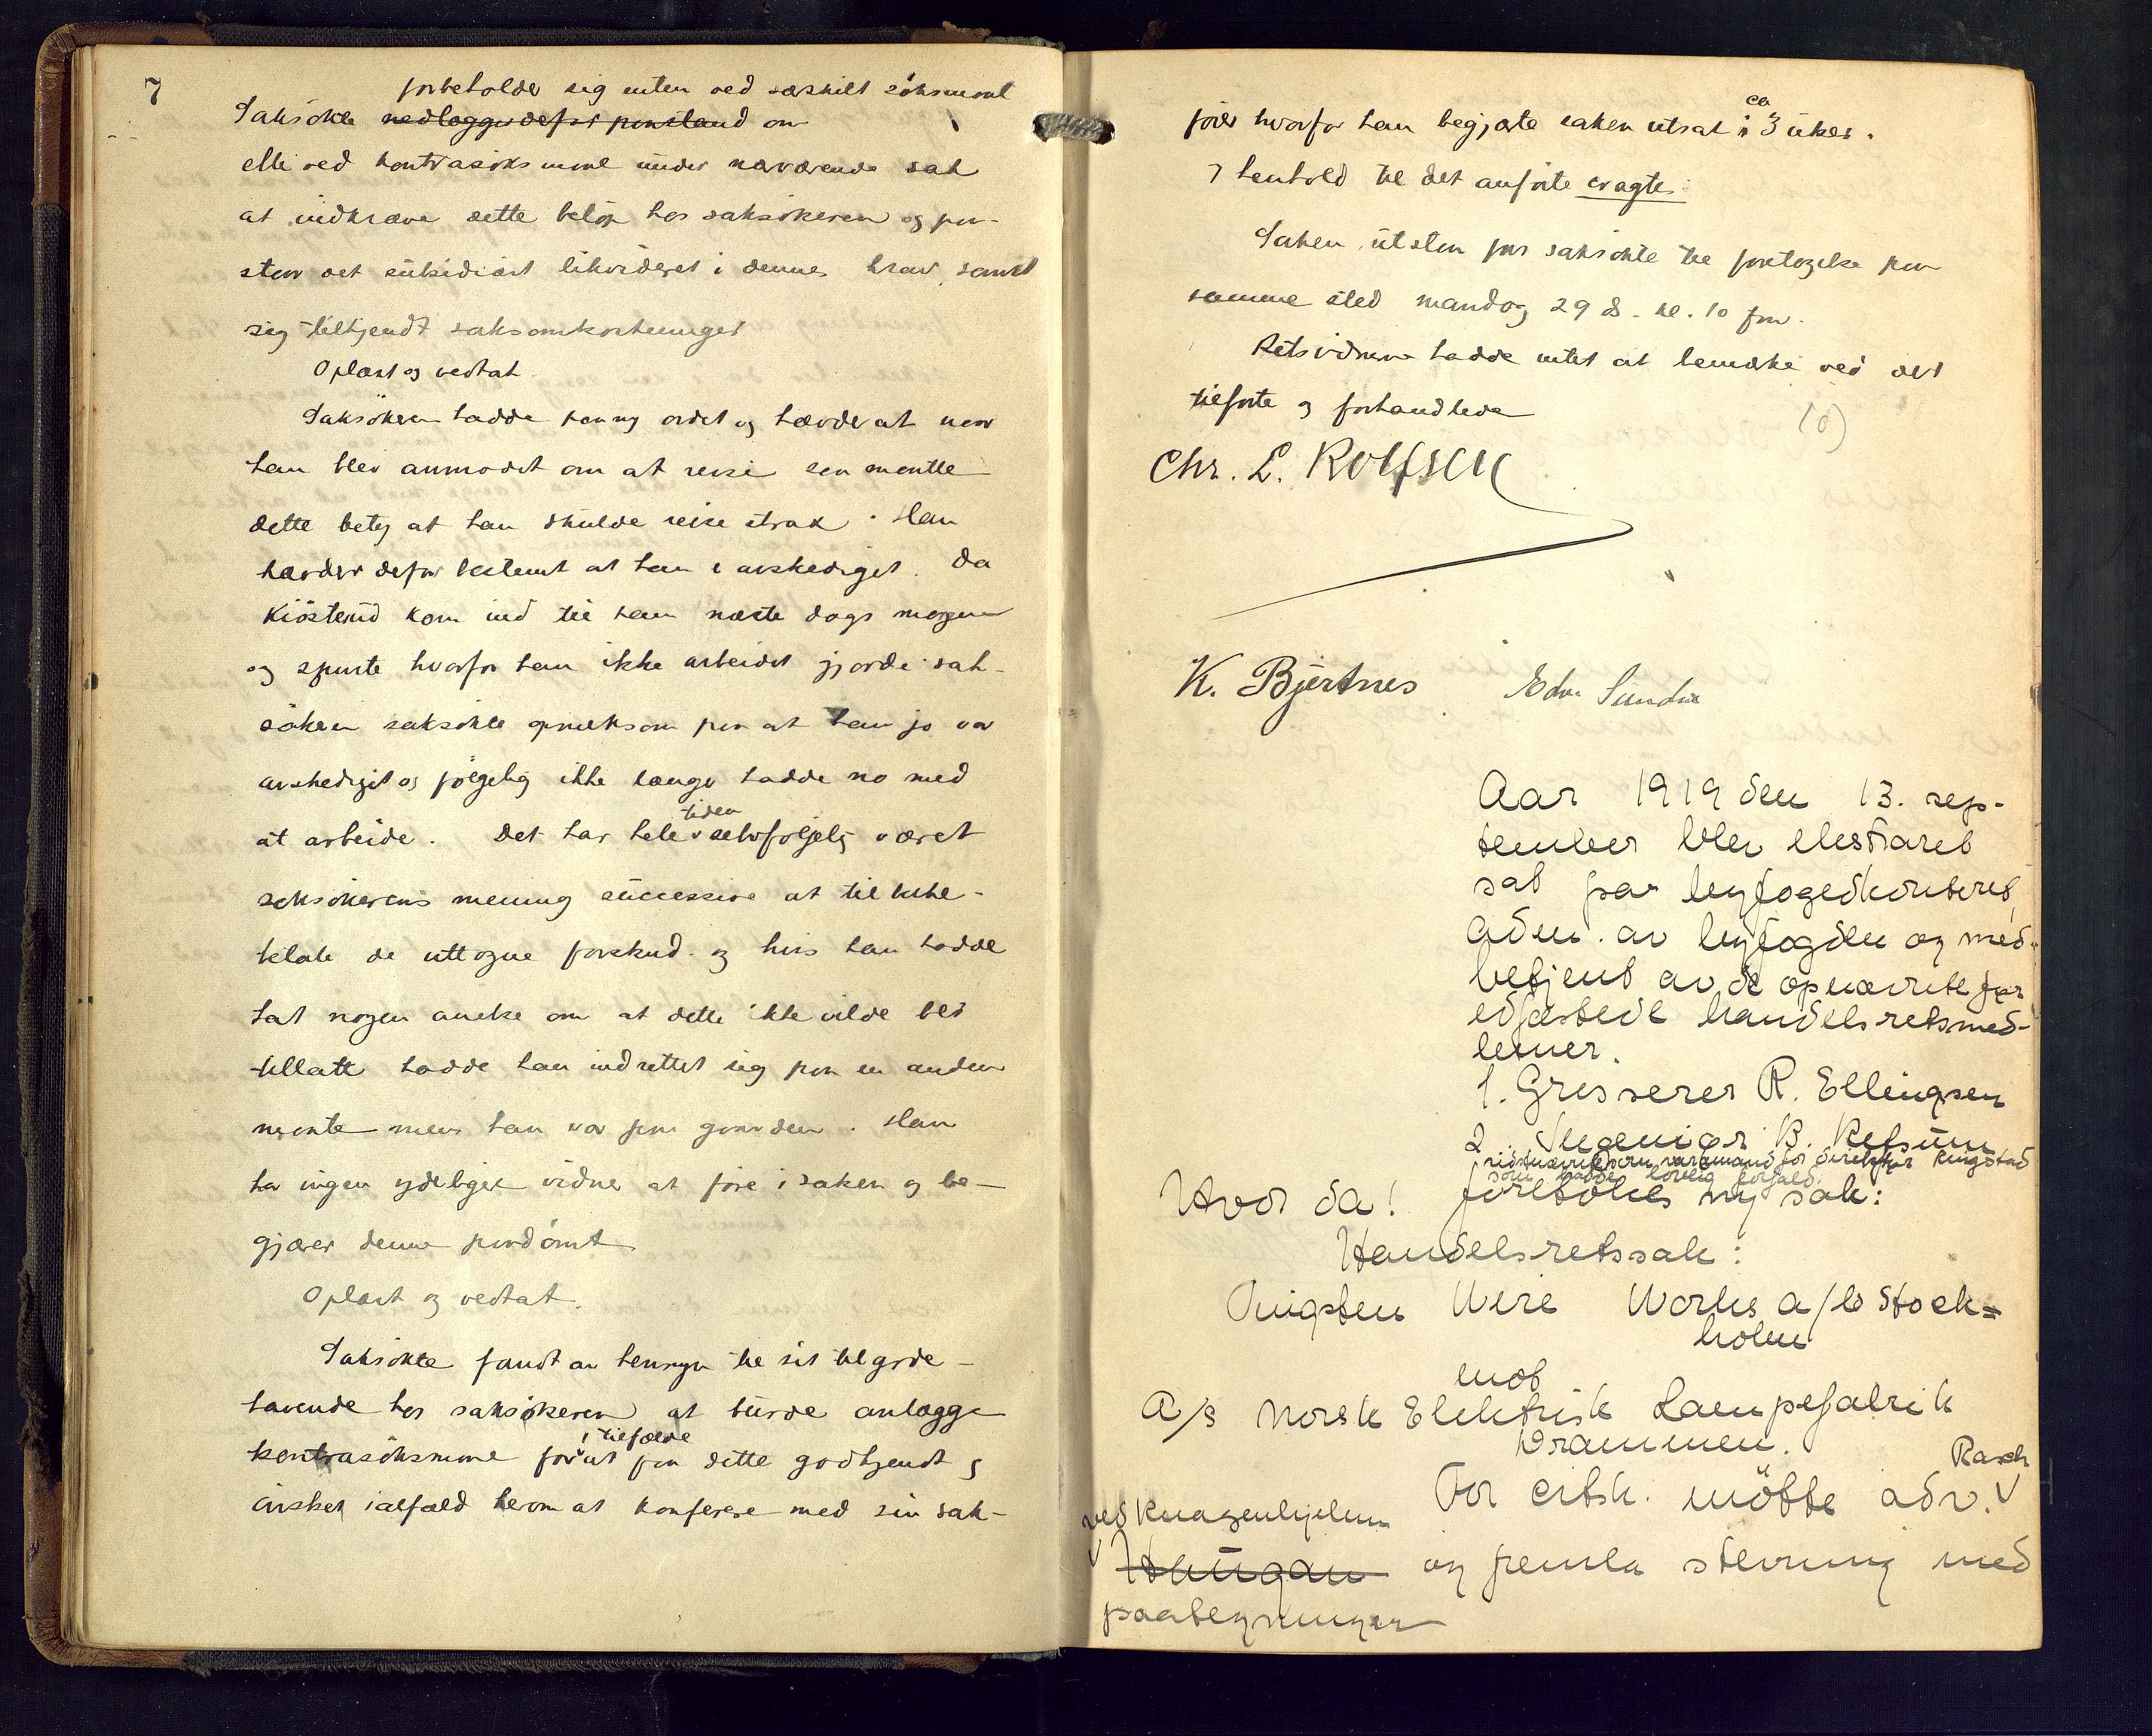 7
forbeholder sig enten ved særskilt söksmaal
Saksökte nedlægger defor paastand om
eller ved kontrasöksmaal under nærværende sak
at indkræve dette belöp hos saksökeren og paa-
staar det subsidiært likvideret i dennes krav, samt
sig tilkjendt saksomkostninger
Oplæst og vedtat
Saksökeren hadde paany ordet og hævder at naar
han blev anmodet om at reise saa mentte
dette bety at han skulde reise strax. Han
hævder defor bestemt at han er avskediget. Da
Kiösterud kom ind til ham næste dags morgen
og spurte hvorfor han ikke arbeidet gjorde sak-
sökeren saksökte opmerksom paa at han jo var
avskediget og fölgelig ikke længer hadde no med
at arbeide. Det har hele tiden selvfölgelig været
saksökerens mening successive at tilbake-
betale de uttagne forskud og hvis han hadde
hat nogen anelse om at dette ikke vilde bli
tillatt hadde han indrettet sig paa en anden
maate mens han var paa gaarden. Han
har ingen yderligere vidner at före i saken og be-
gjærer denne paadömt
Oplæst og vedtat.
Saksökte fandt av hensyn til sit tilgode-
havende hos saksökeren at burde anlægge
kontrasöksmaal for i tilfælde at faa dette godkjendt og
önsker ialfald herom at konferere med sin sak-
förer hvorfor han begjærte saken utsat i ca 3 uker.
I henhold til det anförte eragtes:
Saken utstaar for saksökte til foretagelse paa
samme sted mandag 29 ds. kl. 10 fm.
Retsvidnerne hadde intet at bemærke ved det
tilförte og forhandlede
(6)
Chr. L. Rolfsen
K. Bjertnes Edv. Sundre
Aar 1919 den 13. sep-
tember blev ekstraret
sat paa byfogedkontoret,
Dmn. av byfogden og med-
betjent av de opnævnte før
edfæstede handelsretsmed-
lemer.
1. Grosserer R. Ellingsen
2. Ingeniør B. Refsum
sidstnævnte som varamand for direktør Ringstad
som hadde lovlig forfald.
Hvor da! foretokes ny sak:
Handelsretssak:
Tungsten Wire Works a/b Stock=
holm
mot
A/s Norsk Elektrisk Lampefabrik
Drammen.
For citst. mötte adv. Rasch
ved Knagenhjelm
Haugan og femla stevning med
paategninger